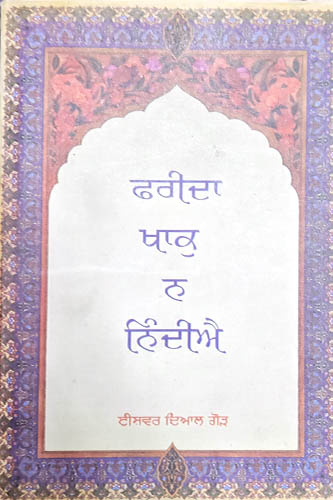 ਫਰੀਦਾ
ਖਾਕੁ
ਨ
ਨਿੰਦੀਐ
ਈਸਵਰ ਦਿਆਲ ਗੌੜ